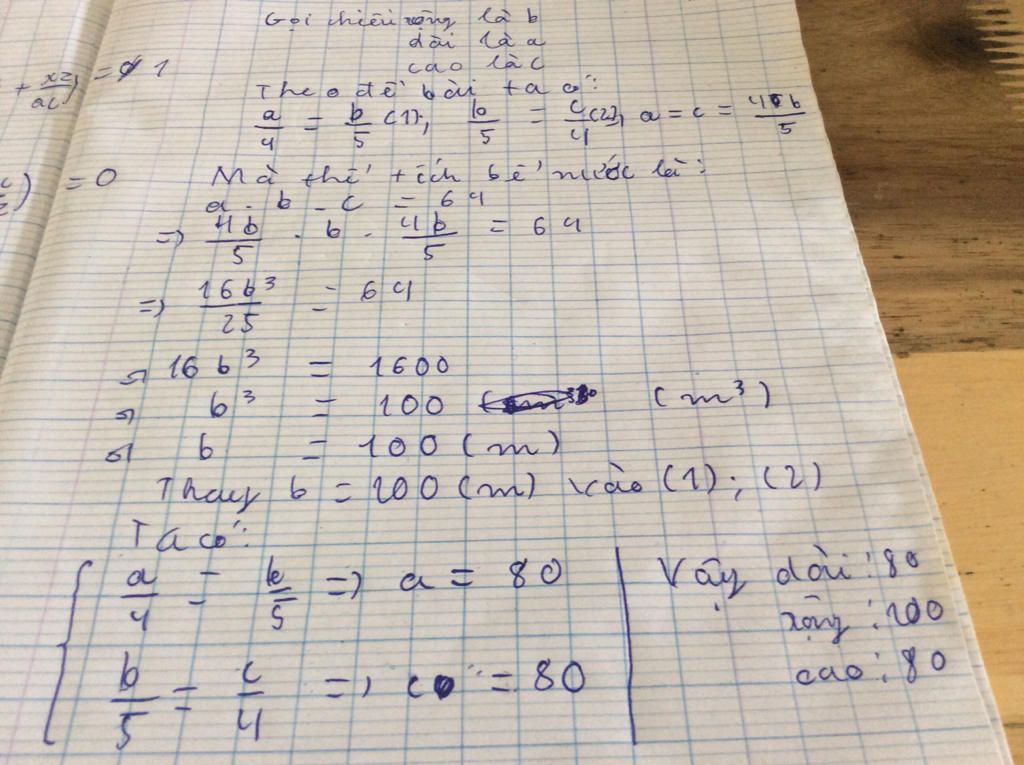 Gọi chiều rộng là b
dài là a
cao là c
+ xz/ac = 1
Theo đề bài ta có:
a/4 = b/5 (1); b/5 = c/4 (2), a = c = 4b/5
) = 0
Mà thể tích bể nước là:
a . b . c = 64
=> 4b/5 . b . 4b/5 = 64
=> 16b³/25 = 64
=> 16b³ = 1600
=> b³ = 100 (m³)
=> b = 100 (m)
Thay b = 100 (m) vào (1); (2)
Ta có:
{ a/4 = b/5 => a = 80
b/5 = c/4 => c = 80
Vậy dài : 80
rộng : 100
cao : 80